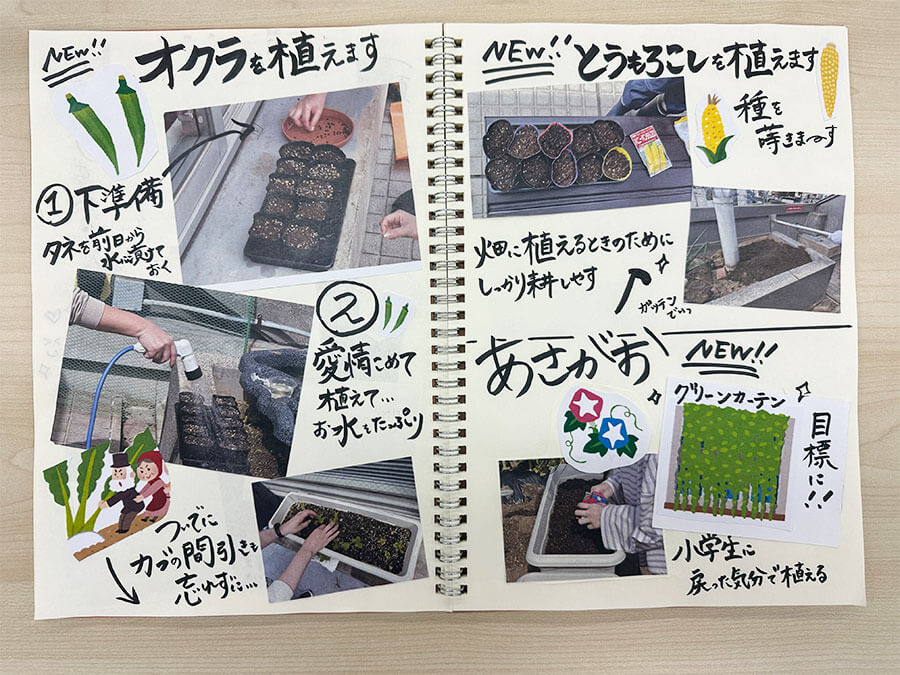 NEW!!
オクラを植えます
①下準備
タネを前日から
水に漬けて
おく
②
愛情こめて
植えて…
お水をたっぷり
ついでに
カブの間引きも
忘れずに…
NEW!!
とうもろこしを植えます
種を
蒔きまーす
畑に植えるときのために
しっかり耕しやす
ガッテン
でいっ
あさがお
NEW!!
グリーンカーテン
目標に!!
小学生に
戻った気分で植える